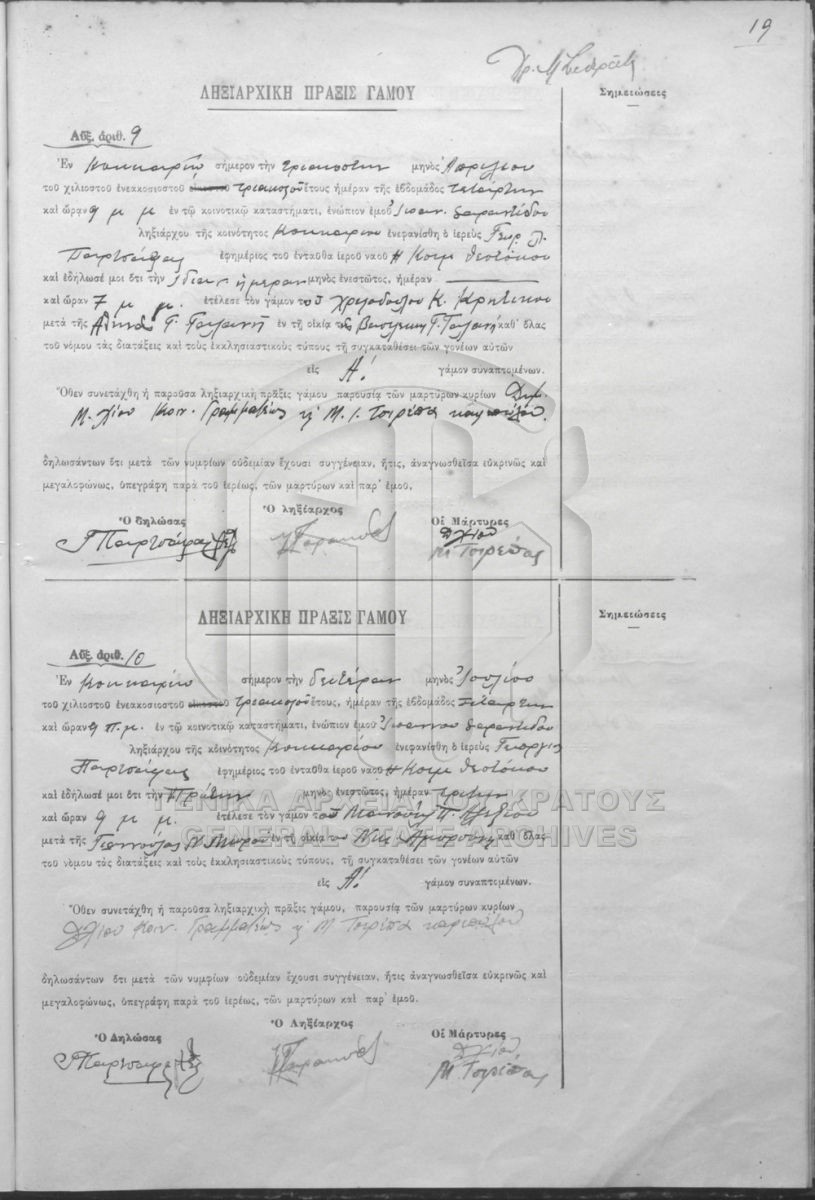 19
ΛΗΞΙΑΡΧΙΚΗ ΠΡΑΞΙΣ ΓΑΜΟΥ
Σημειώσεις
Αὔξ. ἀριθ. 9
Ἐν Κοκκαρίῳ σήμερον τὴν τριακοστὴν μηνὸς Ἀπριλίου
τοῦ χιλιοστοῦ ἐνεακοσιοστοῦ εἰκοστοῦ τριακοστοῦ ἔτους ἡμέραν τῆς ἑβδομάδος τετάρτην
καὶ ὥραν 9 μ μ ἐν τῷ κοινοτικῷ καταστήματι, ἐνώπιον ἐμοῦ Ἰωαν. Σαραντίδου
ληξιάρχου τῆς κοινότητος Κοκκαρίου ἐνεφανίσθη ὁ ἱερεὺς Γεωρ. Π.
ἐφημέριος τοῦ ἐνταῦθα ἱεροῦ ναοῦ Η Κοιμ Θεοτόκου
καὶ ἐδήλωσέ μοι ὅτι τὴν ἰδίαν ἡμέραν μηνὸς ἐνεστῶτος, ἡμέραν
καὶ ὥραν 7 μ μ. ἐτέλεσε τὸν γάμον τοῦ Χριστοδούλου Κ. Κρητικοῦ
μετὰ τῆς Γ. ἐν τῇ οἰκίᾳ τῆς Γ. καθ' ὅλας
τοῦ νόμου τὰς διατάξεις καὶ τοὺς ἐκκλησιαστικοὺς τύπους τῇ συγκαταθέσει τῶν γονέων αὐτῶν
εἰς Α! γάμον συναπτομένων.
Ὅθεν συνετάχθη ἡ παροῦσα ληξιαρχικὴ πρᾶξις γάμου παρουσίᾳ τῶν μαρτύρων κυρίων Δημ.
Μ. Χίου Κοιν. Γραμματέως κ Μ. Ι. Τσιρέπα
δηλωσάντων ὅτι μετὰ τῶν νυμφίων οὐδεμίαν ἔχουσι συγγένειαν, ἥτις, ἀναγνωσθεῖσα εὐκρινῶς καὶ
μεγαλοφώνως, ὑπεγράφη παρὰ τοῦ ἱερέως, τῶν μαρτύρων καὶ παρ' ἐμοῦ.
Ὁ δηλώσας Ὁ ληξίαρχος Οἱ Μάρτυρες
Δ Χίου
Μ Τσιρέπας
ΛΗΞΙΑΡΧΙΚΗ ΠΡΑΞΙΣ ΓΑΜΟΥ
Σημειώσεις
Αὔξ. ἀριθ. 10
Ἐν Κοκκαρίῳ σήμερον τὴν δευτέραν μηνὸς Ἰουλίου
τοῦ χιλιοστοῦ ἐνεακοσιοστοῦ εἰκοστοῦ τριακοστοῦ ἔτους, ἡμέραν τῆς ἑβδομάδος Τετάρτην
καὶ ὥραν 9 π.μ. ἐν τῷ κοινοτικῷ καταστήματι, ἐνώπιον ἐμοῦ Ἰωάννου Σαραντίδου
ληξιάρχου τῆς κοινότητος Κοκκαρίου ἐνεφανίσθη ὁ ἱερεὺς Γεώργιος
ἐφημέριος τοῦ ἐνταῦθα ἱεροῦ ναοῦ Η Κοιμ Θεοτόκου
καὶ ἐδήλωσέ μοι ὅτι τὴν Πρώτην μηνὸς ἐνεστῶτος, ἡμέραν τρίτην
καὶ ὥραν 9 μ μ. ἐτέλεσε τὸν γάμον τοῦ Μανουὴλ Π. Ἀλεξίου
μετὰ τῆς Γιαννούλας Ν. ἐν τῇ οἰκίᾳ τοῦ Νικ. καθ' ὅλας
τοῦ νόμου τὰς διατάξεις καὶ τοὺς ἐκκλησιαστικοὺς τύπους, τῇ συγκαταθέσει τῶν γονέων αὐτῶν
εἰς Α! γάμον συναπτομένων.
Ὅθεν συνετάχθη ἡ παροῦσα ληξιαρχικὴ πρᾶξις γάμου, παρουσίᾳ τῶν μαρτύρων κυρίων
Δ Χίου Κοιν. Γραμματέως κ Μ Τσιρέπα
δηλωσάντων ὅτι μετὰ τῶν νυμφίων οὐδεμίαν ἔχουσι συγγένειαν, ἥτις ἀναγνωσθεῖσα εὐκρινῶς καὶ
μεγαλοφώνως, ὑπεγράφη παρὰ τοῦ ἱερέως, τῶν μαρτύρων καὶ παρ' ἐμοῦ.
Ὁ Δηλώσας Ὁ Ληξίαρχος Οἱ Μάρτυρες
Δ Χίου
Μ. Τσιρέπας
ΓΕΝΙΚΑ ΑΡΧΕΙΑ ΤΟΥ ΚΡΑΤΟΥΣ
GENERAL STATE ARCHIVES